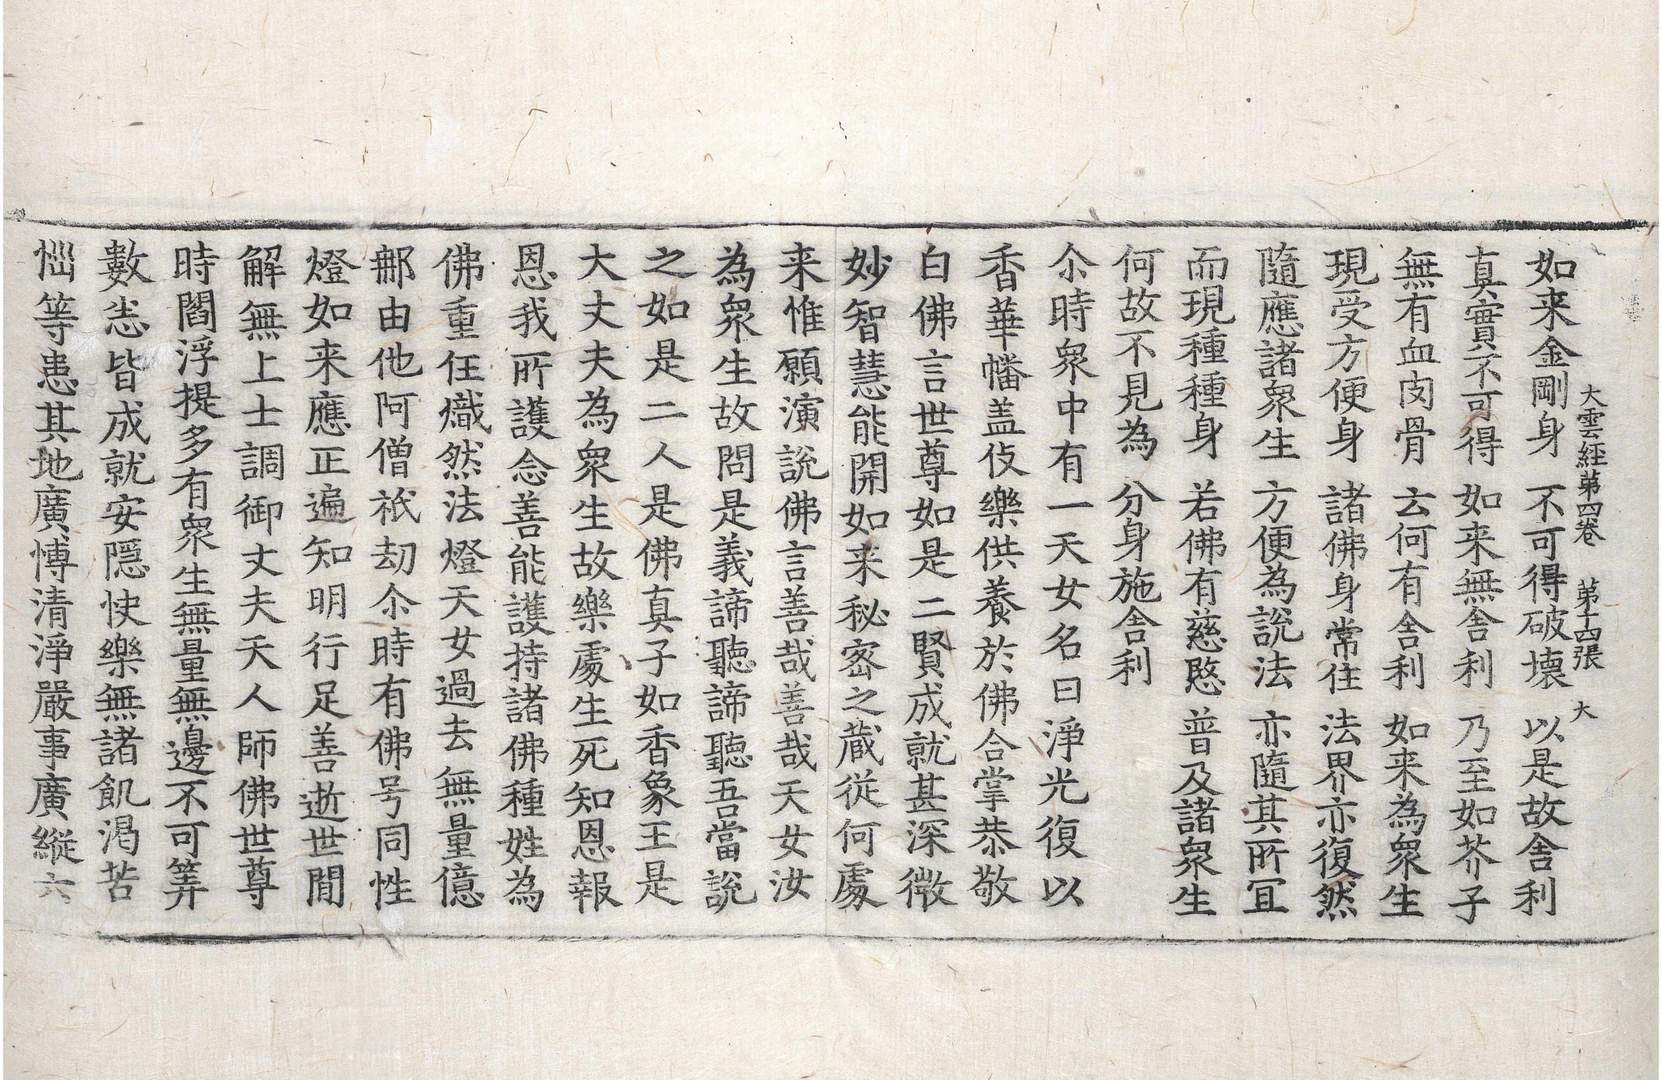 大雲経苐四卷 苐十四張 大
如来金剛身 不可得破壊 以是故舎利
真實不可得 如来無舎利 乃至如芥子
無有血肉骨 云何有舎利 如来為衆生
現受方便身 諸佛身常住 法界亦復然
隨應諸衆生 方便為說法 亦隨其所冝
而現種種身 若佛有慈愍 普及諸衆生
何故不見為 分身施舎利
尒時衆中有一天女名曰淨光復以
香華幡盖伎樂供養於佛合掌恭敬
白佛言世尊如是二賢成就甚深微
妙智慧能開如来秘密之藏從何處
来惟願演說佛言善哉善哉天女汝
為衆生故問是義諦聽諦聽吾當說
之如是二人是佛真子如香象王是
大丈夫為衆生故樂處生死知恩報
恩我所護念善能護持諸佛種姓為
佛重任熾然法燈天女過去無量億
那由他阿僧祇劫尒時有佛号同性
燈如来應正遍知明行足善逝世間
解無上士調御丈夫天人師佛世尊
時閻浮提多有衆生無量無邊不可筭
數悉皆成就安隱快樂無諸飢渴苦
惱等患其地廣愽清淨嚴事廣縱六